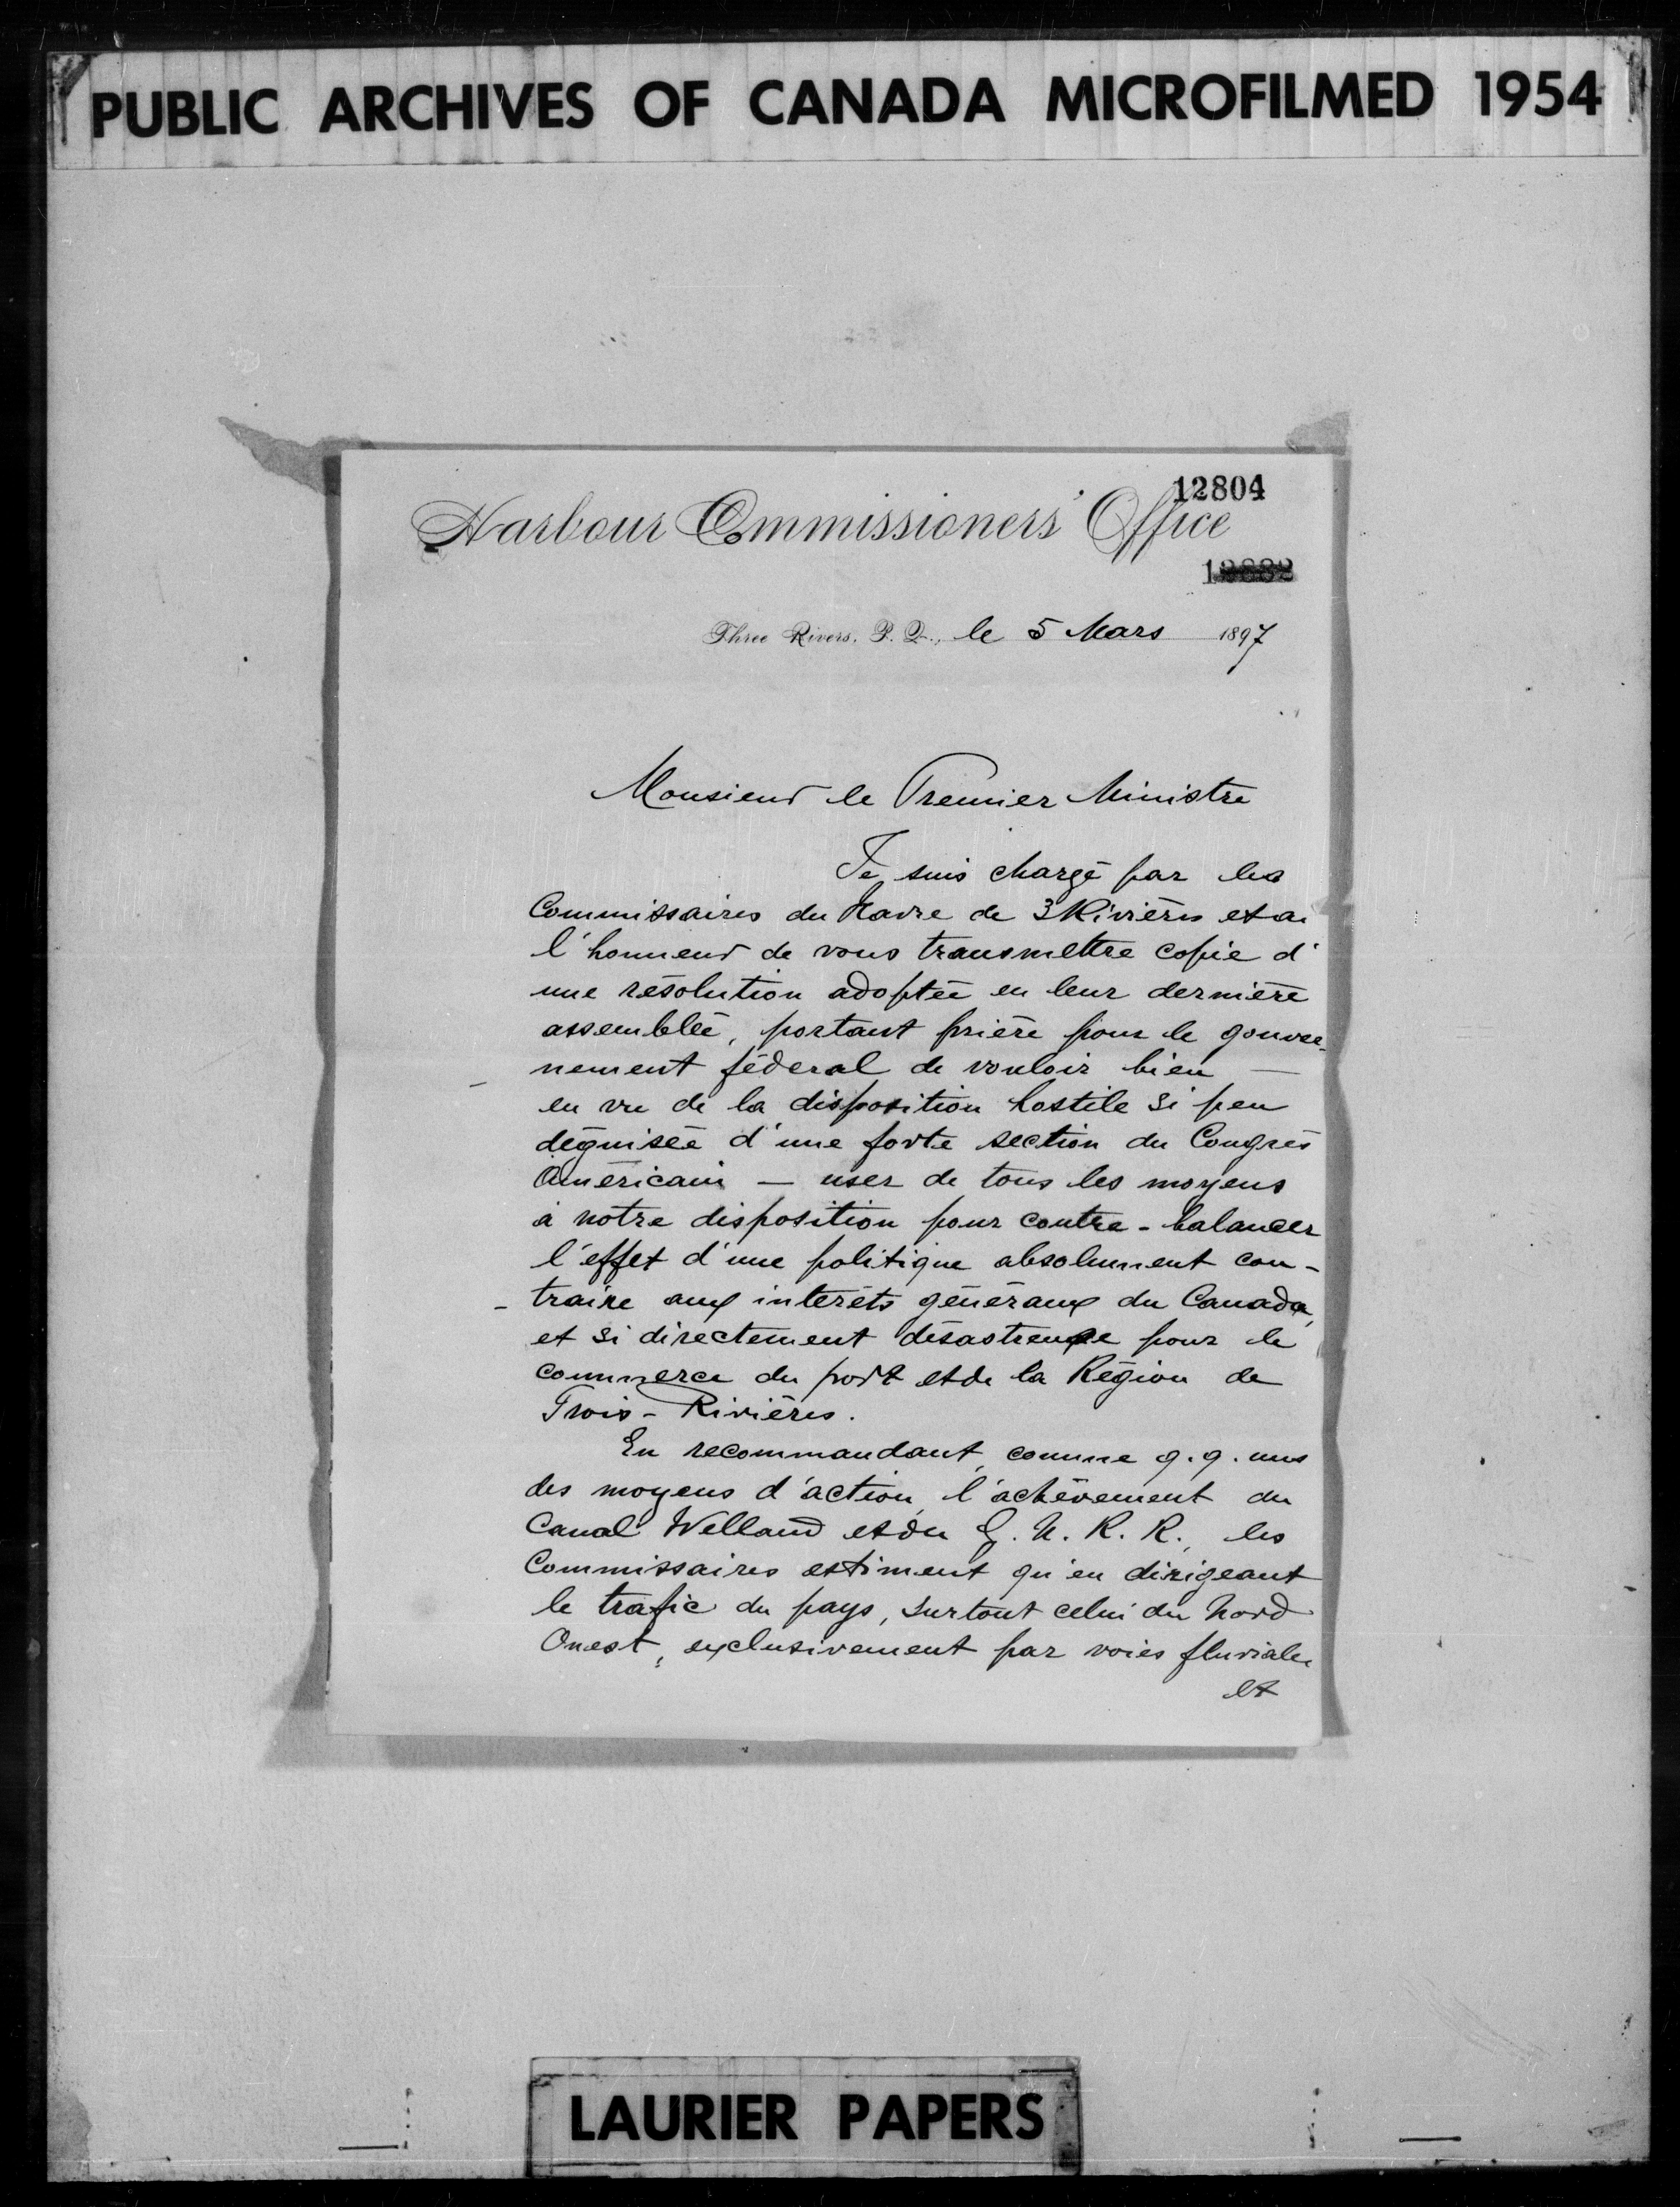 PUBLIC ARCHIVES OF CANADA MICROFILMED 1954
12804
Harbour Commissioners' Office
Three Rivers, P. Q., le 5 Mars 1897
Monsieur le Premier Ministre
Je suis chargé par les
Commissaires du Havre de 3 Rivières et ai
l'honneur de vous transmettre copie d'
une résolution adoptée en leur dernière
assemblée, portant prière pour le gouver-
nement féderal de vouloir bien —
en vu de la disposition hostile si peu
déguisée d'une forte section du Congrès
Américain — user de tous les moyens
à notre disposition pour contre-balancer
l'effet d'une politique absolument con-
- traire aux intérêts généraux du Canada,
et si directement désastreuse pour le
commerce du port et de la Région de
Trois-Rivières.
En recommandant, comme q.q. uns
des moyens d'action, l'achèvement du
Canal Welland et du R. R., les
Commissaires estiment qu'en dirigeant
le trafic du pays, surtout celui du Nord
Ouest, exclusivement par voies fluviales
et
LAURIER PAPERS